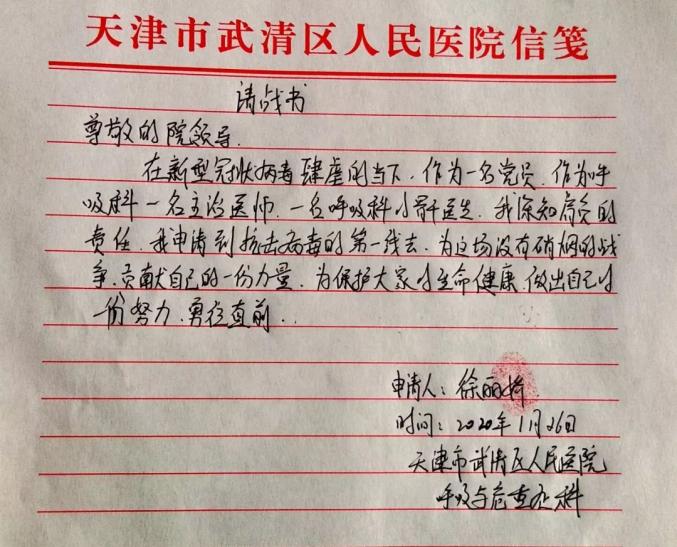 天津市武清区人民医院信笺
请战书
尊敬的院领导.
在新型冠状病毒肆虐的当下,作为一名党员,作为呼
吸科一名主治医师,一名呼吸科的骨干医生,我深知肩负的
责任,我申请到抗击病毒的第一线去,为这场没有硝烟的战
争,贡献自己的一份力量,为保护大家的生命健康,做出自己的
一份努力,勇往直前..
申请人:徐丽
时间:2020年1月26日
天津市武清区人民医院
呼吸与危重症科